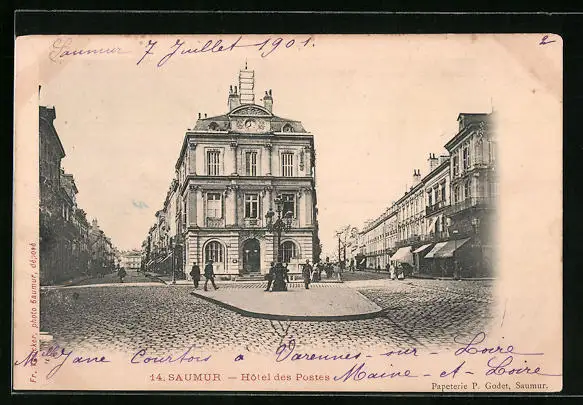 Saumur 7 Juillet 1901
2
photo Saumur, déposé
Mlle Jane Courtois à Varennes-sur-Loire
14. SAUMUR – Hôtel des Postes
Maine-et-Loire
Papeterie P. Godet, Saumur.